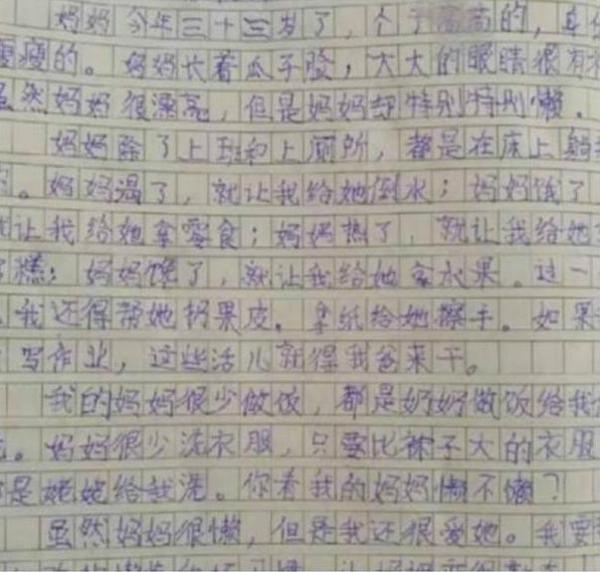 妈妈今年三十三岁了，个子高高的，身
瘦瘦的。妈妈长着瓜子脸，大大的眼睛很有
虽然妈妈很漂亮，但是妈妈却特别特别懒。
妈妈除了上班和上厕所，都是在床上躺
。妈妈渴了，就让我给她倒水；妈妈饿了
就让我给她拿零食；妈妈热了，就让我给她
糕；妈妈馋了，就让我给她拿水果。过一
，我还得帮她扔果皮。拿纸给她擦手。如果
写作业，这些活儿就得我爸来干。
我的妈妈很少做饭，都是奶奶做饭给我
。妈妈很少洗衣服，只要比袜子大的衣服
是姥姥给我洗。你看我的妈妈懒不懒？
虽然妈妈很懒，但是我还很爱她。我要